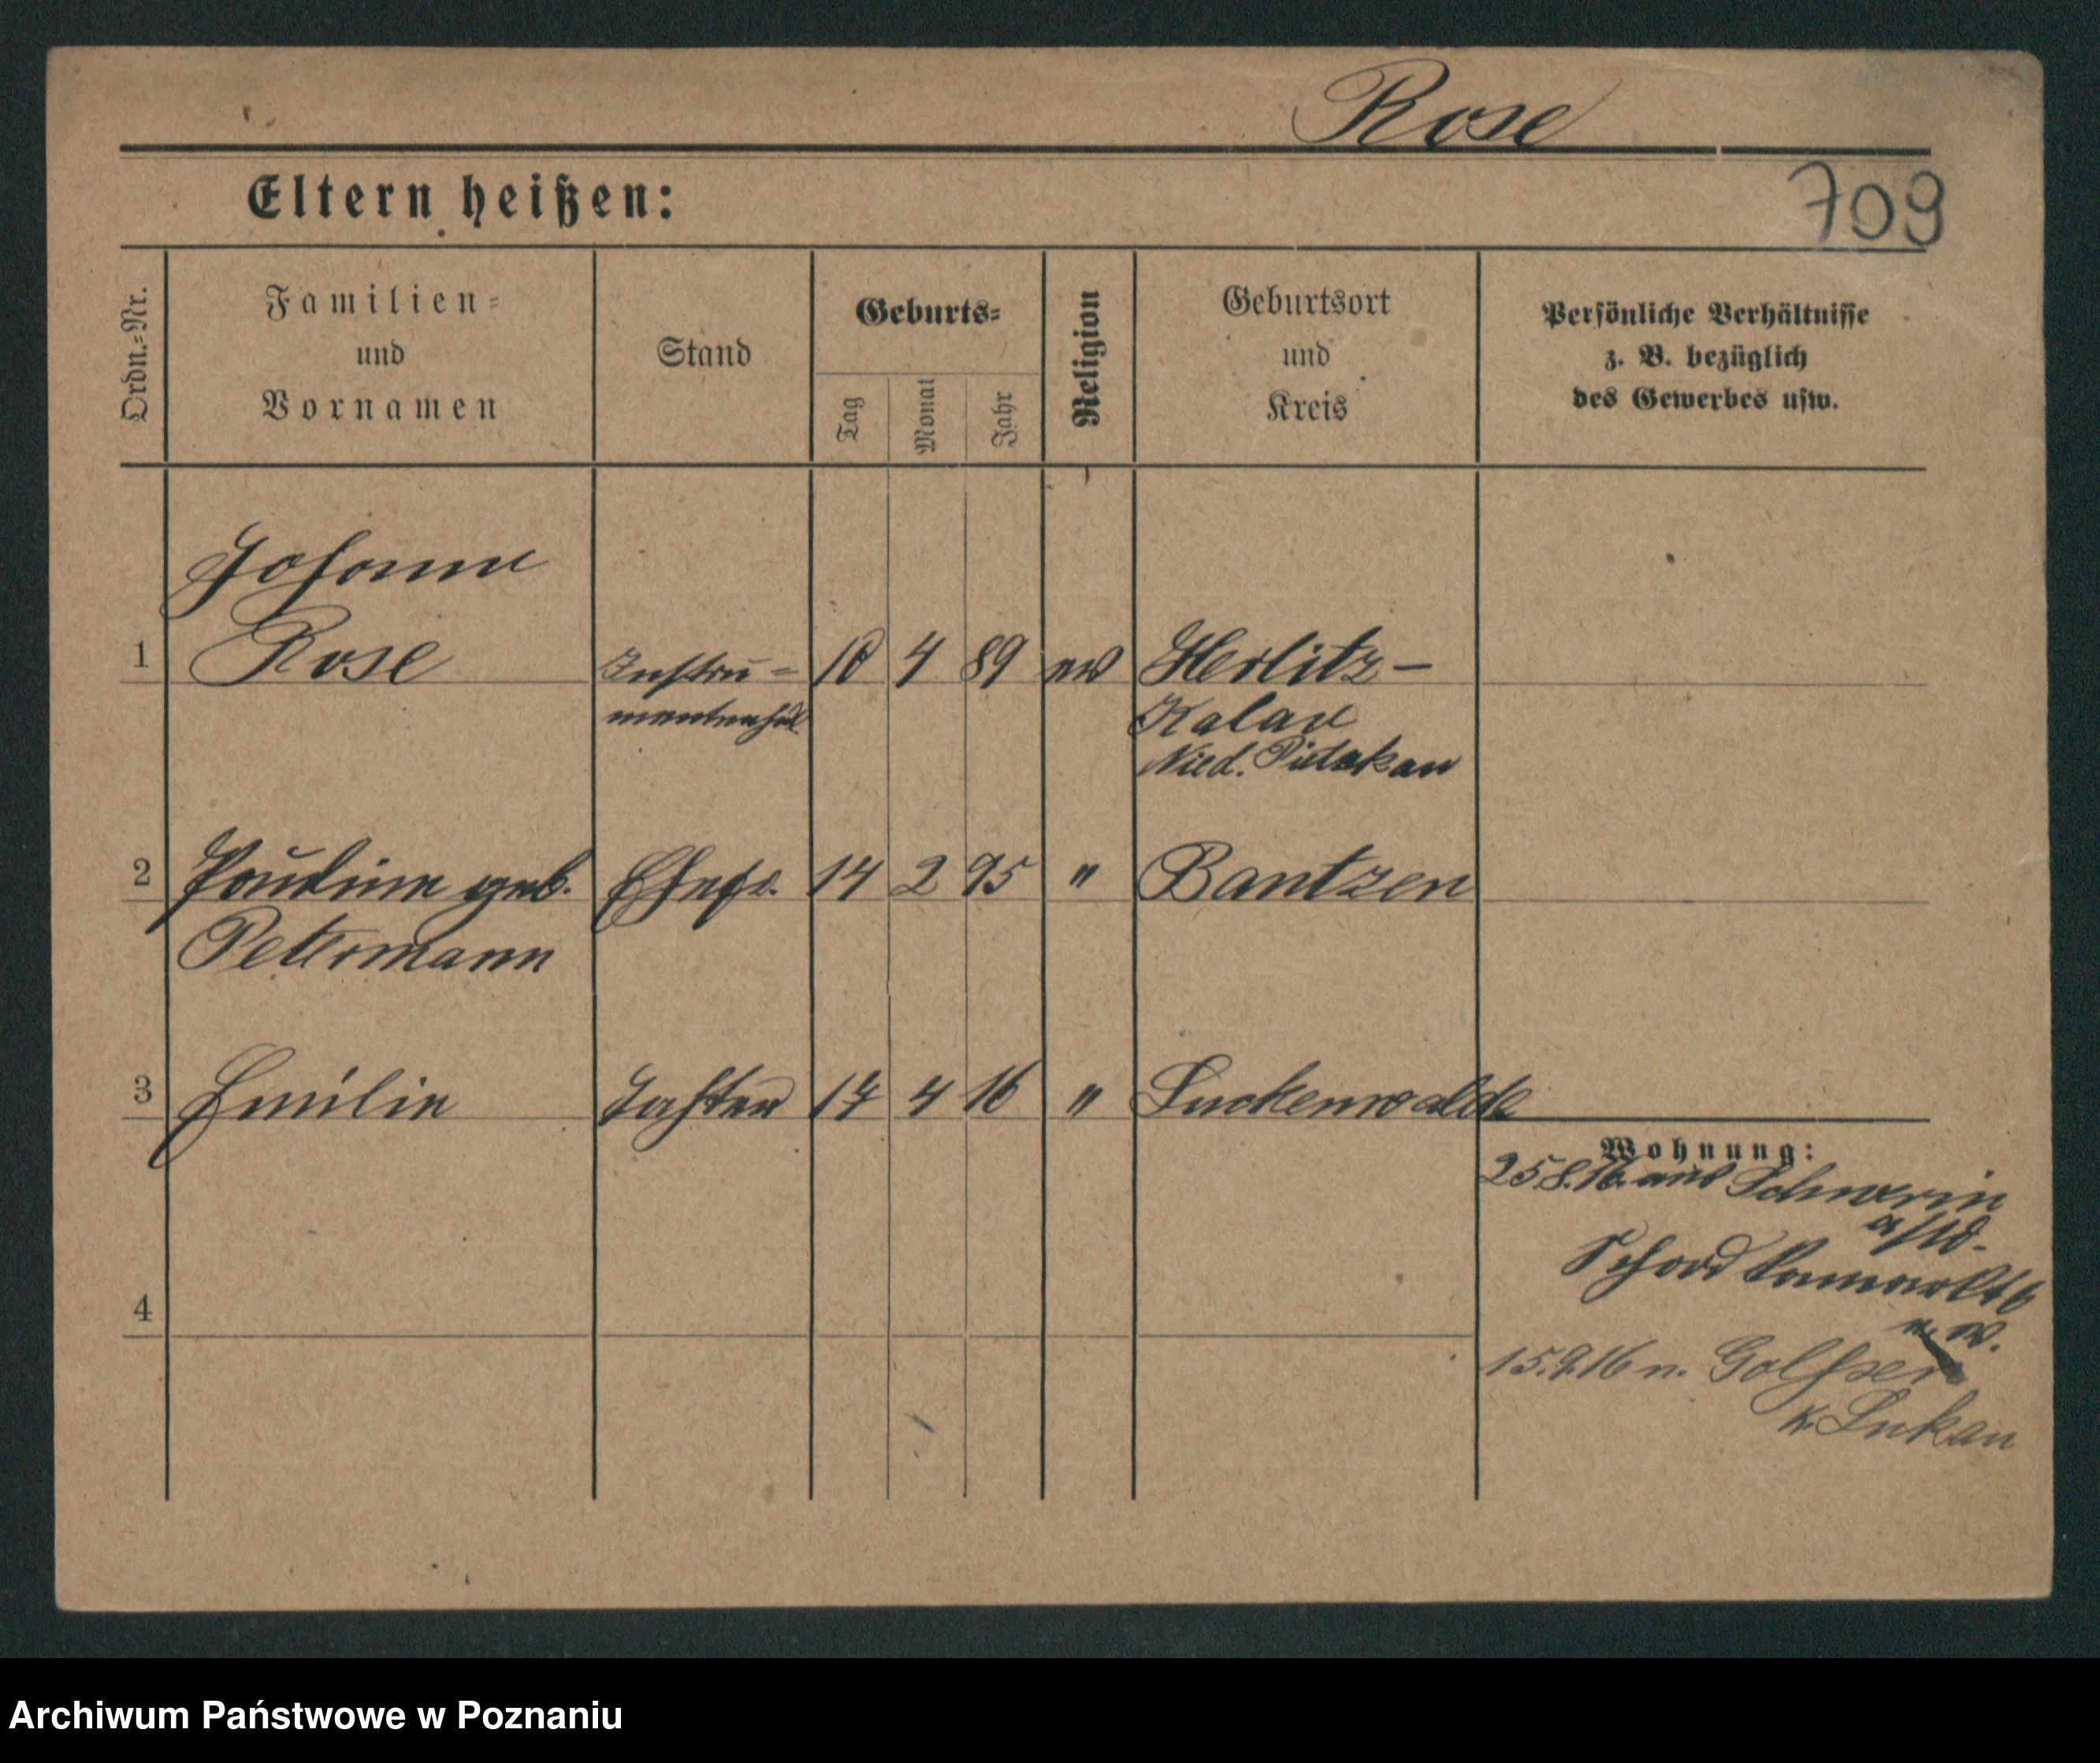 Rose
Eltern heißen:
709
Ordn.=Nr.
Familien=
und
Vornamen
Stand
Geburts=
Tag
Monat
Jahr
Religion
Geburtsort
und
Kreis
Persönliche Verhältnisse
z. B. bezüglich
des Gewerbes usw.
Johann
1 Rose Instru= 10 4 89 Herlitz –
Kalau
Nied.
2 Pauline geb. Ehefr. 14 2 95 " Bantzen
Petermann
3 Emilie Tochter 17 4 16 " Luckenwalde
Wohnung:
25.8.16. aus Schwerin
a/W.
4
15.9.16 n. Golßen
K. Lukau
Archiwum Państwowe w Poznaniu